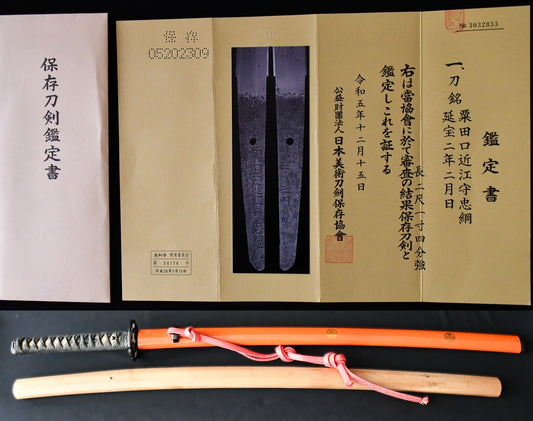 保存刀剣鑑定書
保存
05202309
№ 3032833
鑑定書
一、刀 銘 粟田口近江守忠綱
延宝二年二月日
長 二尺一寸四分強
右は當協會に於て審査の結果保存刀剣と
鑑定しこれを証する
令和五年十二月十五日
公益財團法人日本美術刀剣保存協會